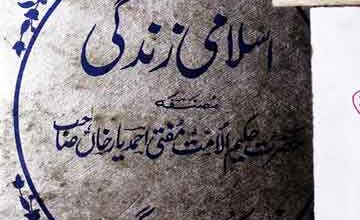 اسلامی زندگی
مصنفہ
حضرت حکیم الامت مفتی احمد یار خاں صاحب